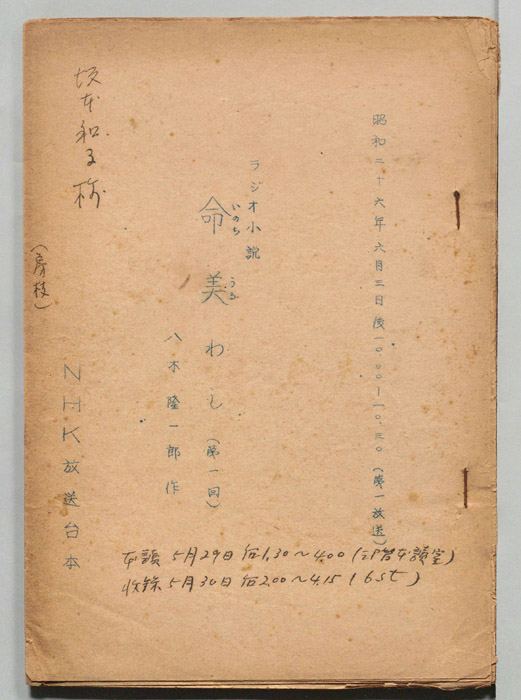 昭和二十六年六月三日後一〇.〇〇―一〇.三〇(第一放送)
ラジオ小説
命美わし(第一回)
いのち うる
八木隆一郎作
坂本和子様
(房枝)
NHK放送台本
本読 5月29日 后1.30~4.00 (本読室)
收録 5月30日 后2.00~4.15 (6st)